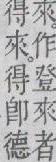 來作登來者
得來。得卽德